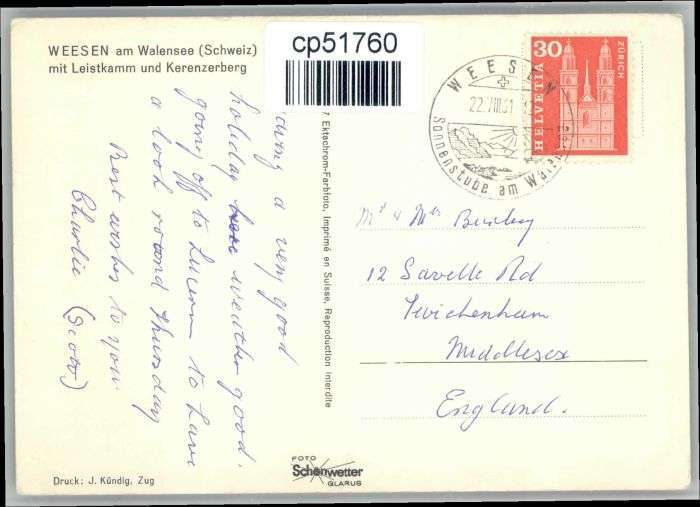 WEESEN am Walensee (Schweiz)
mit Leistkamm und Kerenzerberg
cp51760
30
HELVETIA
ZÜRICH
WEESEN
22.VIII.61
Sonnenstube am
a very good
holiday here weather good.
going off to Lucern to have
a look round Thursday
Best wishes to you
Charlie (Scott)
7 Ektachrom-Farbfoto, Imprimé en Suisse, Reproduction interdite
Mr & Mrs
12 Saville Rd
Twickenham
Middlesex
England.
FOTO
Schönwetter
GLARUS
Druck: J. Kündig, Zug